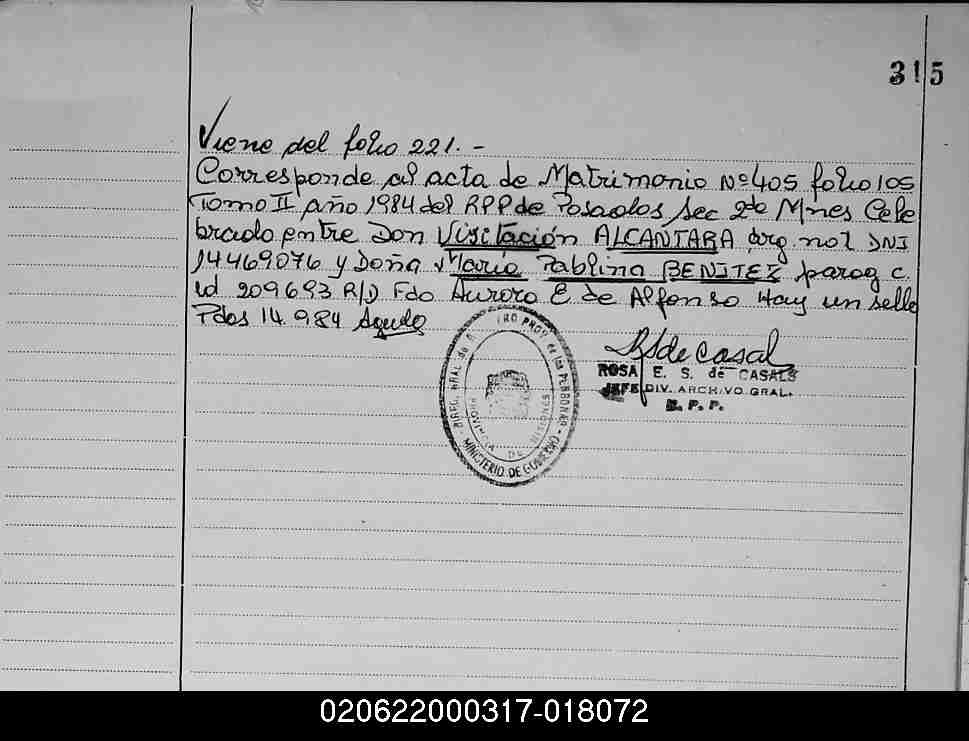 315
Viene del folio 221.-
Corresponde al acta de Matrimonio Nº 405 folio 105
Tomo II año 1984 del RPP de Posadas Sec 2da Mnes Cele
brado entre Don Visitación ALCANTARA arg. nat DNI
14469076 y Doña María Pablina BENITEZ parag c.
id 209693 R/D Fdo Aurora E de Alfonso Hay un sello
Pdas 14.984
ROSA E. S. de CASALS
JEFE DIV. ARCHIVO GRAL.
R. P. P.
DIREC. GRAL de PROV de las PERSONAS
PROVINCIA DE MISIONES
MINISTERIO DE GOBIERNO
020622000317-018072